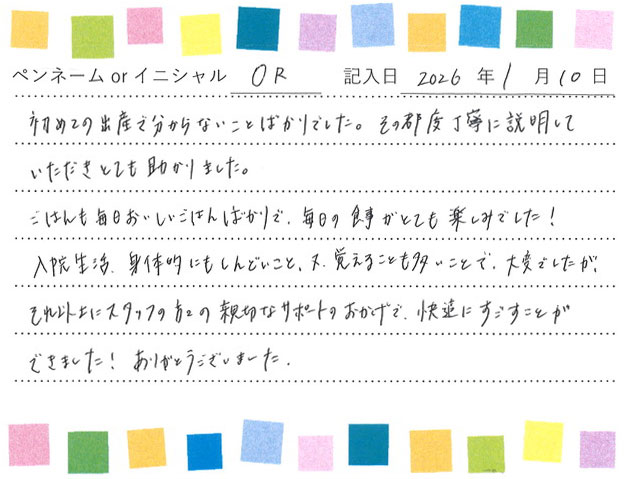 ペンネーム or イニシャル OR 記入日 2026 年 1 月 10 日
初めての出産で分からないことばかりでした。その都度丁寧に説明して
いただきとても助かりました。
ごはんも毎日おいしいごはんばかりで、毎日の食事がとても楽しみでした!
入院生活、身体的にもしんどいこと、又、覚えることも多いことで、大変でしたが、
それ以上にスタッフの方々の親切なサポートのおかげで、快適にすごすことが
できました! ありがとうございました.